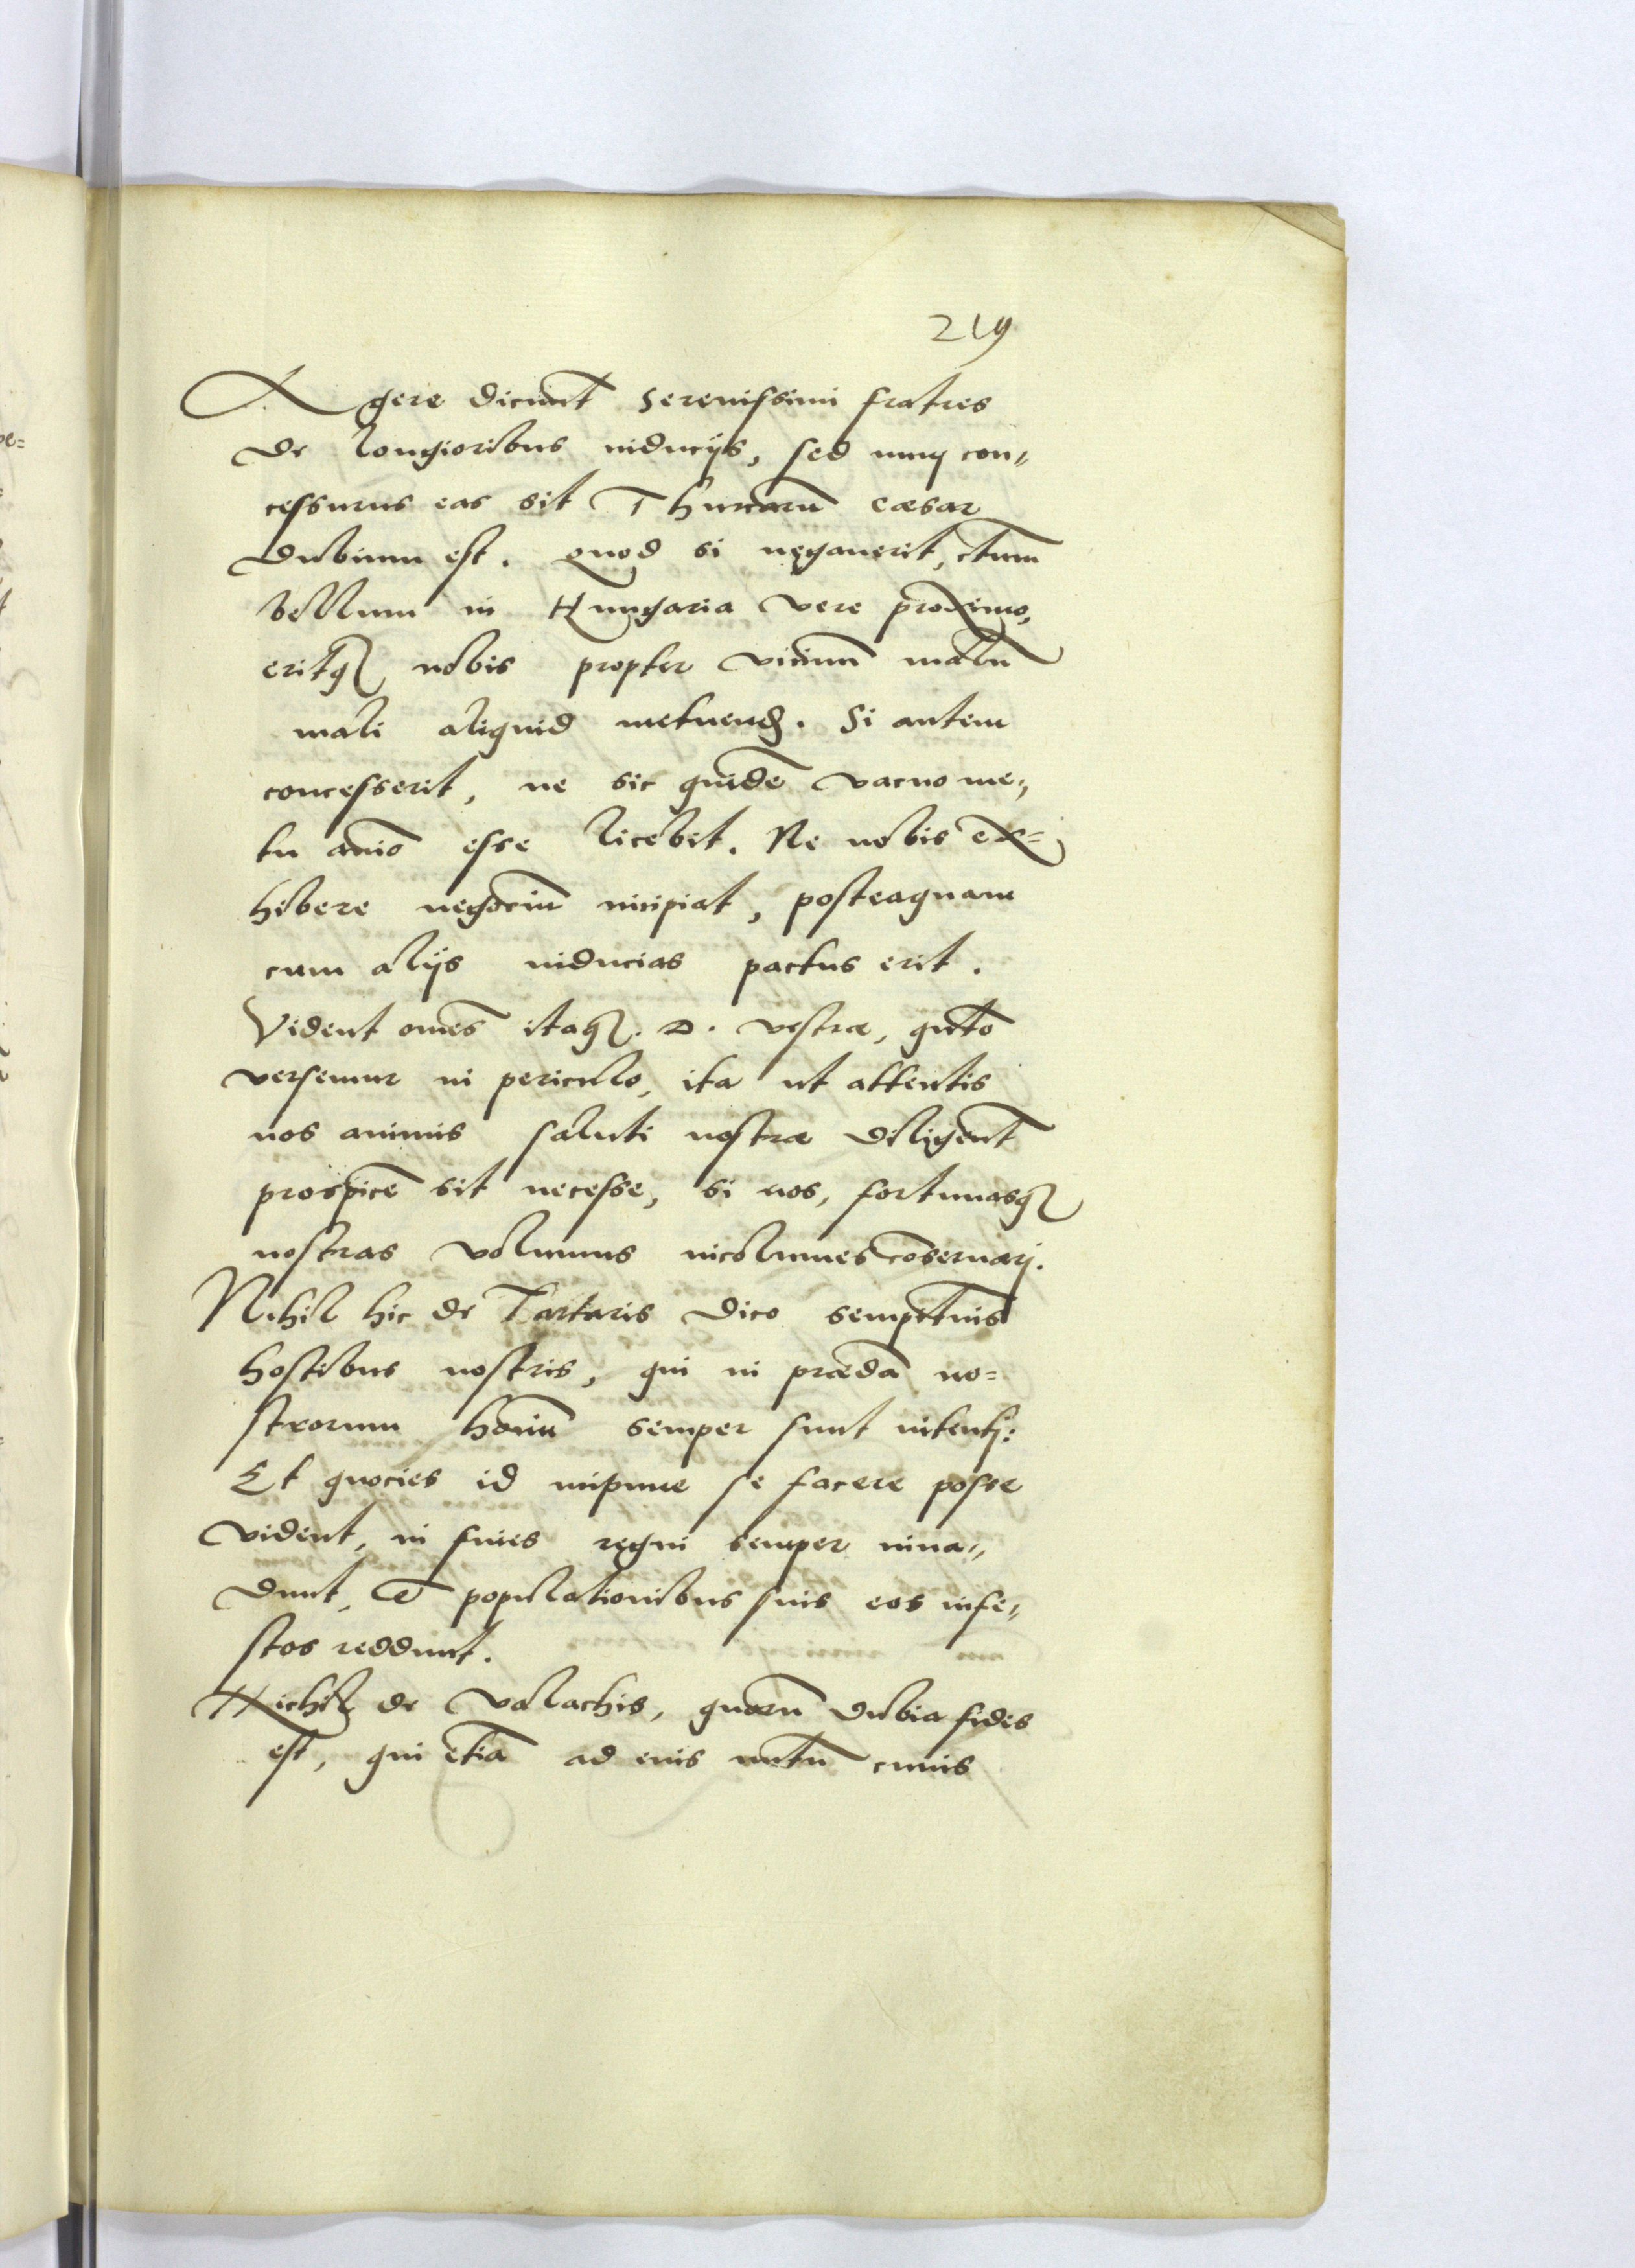 219
Agere dicunt Serenissimi fratres
de longioribus inducijs, sed num con„
cessurus eas sit Thurcarū Cæsar
dubium est. Quod si negauerit,
bellum in Hungaria vere proximo,
eritq; nobis propter vicinū malū
mali aliquid metuend. Si autem
concesserit, ne sic quidē vacuo me„
tu aīo esse licebit. Ne nobis ex=
hibere negociū incipiat, posteaquam
cum alijs inducias pactus erit.
Vident om̄es itaq;. D. vestræ, qūto
versemur in periculo, ita ut attentis
nos animis saluti nostræ diligent̄
prospicē sit necesse, si nos, fortunasq;
nostras volumus incolumes cōseruarj.
Nihil hic de Tartaris dico
hostibus nostris, qui in prædā no=
strorum hoīm semper sunt intentj:
Et quocies id inpune se facere posse
vident, in fines regni semper inua„
dunt, et populationibus suis eos infe„
stos reddunt.
Nichil de Valachis, quorū dubia fides
est, qui etiā ad eius nutū cuius